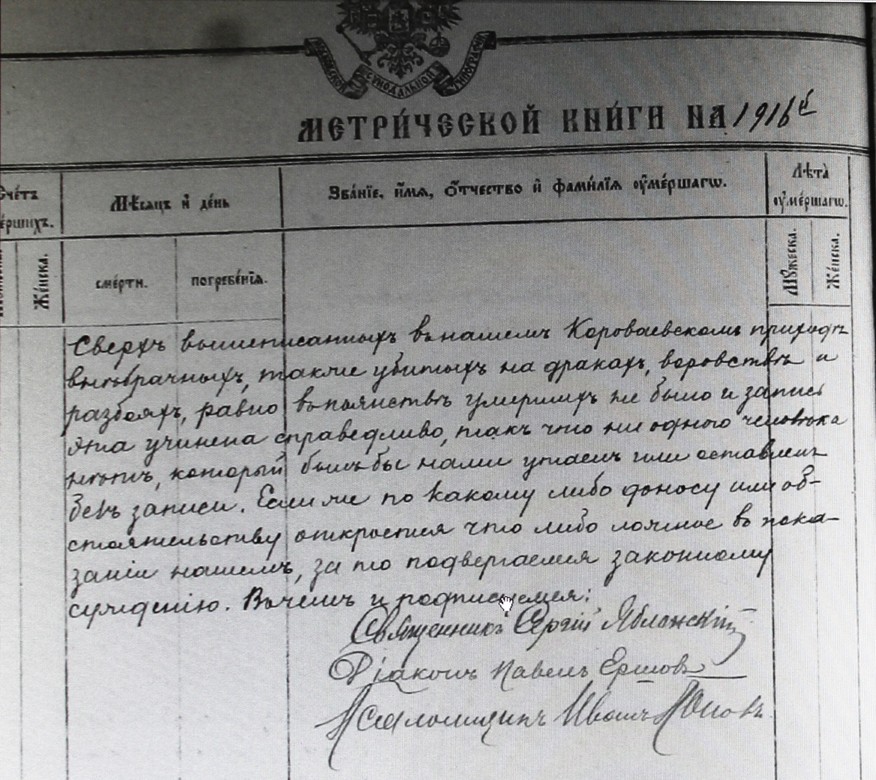 МЕТРИ́ЧЕСКОЙ КНИ́ГИ НА 1916й
Счéтъ
Мѣсяцъ и́ де́нь
Зва́нїе, и҆́мѧ, ѻ҆́тчество и҆ фами́лїѧ ᲂу҆ме́ршагѡ.
Лѣта̀
ᲂу҆ме́ршагѡ.
Же́нска.
сме́рти.
погребе́нїѧ.
Мꙋ́жеска.
Же́нска.
Сверхъ вышеписанныхъ въ нашемъ Короваевскомъ приходѣ
внѣбрачныхъ, также убитыхъ на дракахъ, воровствѣ и
разбояхъ, равно въ пьянствѣ умершихъ не было и запись
эта учинена справедливо, такъ что ни одного человѣка
нѣтъ, который былъ бы нами утаенъ или оставленъ
безъ записи. Если же по какому либо доносу или об-
стоятельству откроется что либо ложное въ пока-
заніи нашемъ, за то подвергаемся законному
сужденію. Въ чемъ и подписуемся:
Священникъ Сергій Яблонскій
Діаконъ Павелъ Ершовъ
Псаломщикъ Иванъ